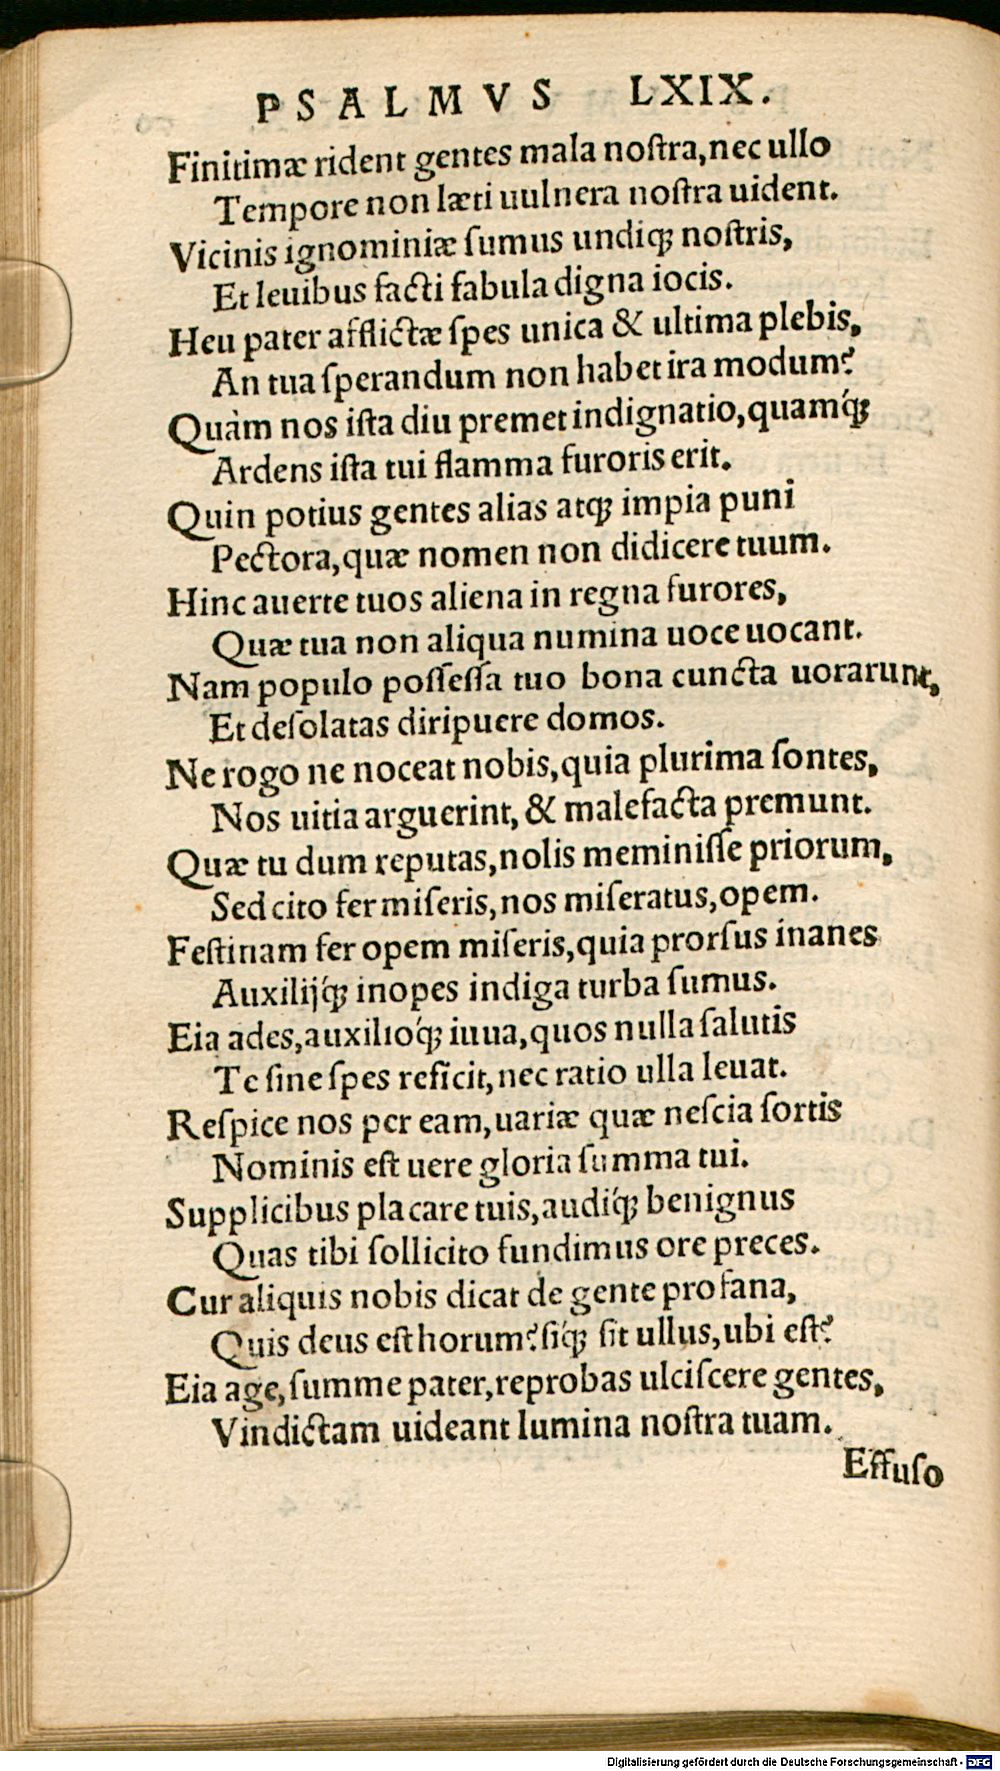 PSALMVS LXIX.
Finitimæ rident gentes mala noſtra, nec ullo
Tempore non læti uulnera noſtra uident.
Vicinis ignominiæ ſumus undiqꝫ noſtris,
Et leuibus facti fabula digna iocis.
Heu pater afflictæ ſpes unica & ultima plebis,
An tua ſperandum non habet ira modum?
Quàm nos iſta diu premet indignatio, quamq́ꝫ
Ardens iſta tui flamma furoris erit.
Quin potius gentes alias atqꝫ impia puni
Pectora, quæ nomen non didicere tuum.
Hinc auerte tuos aliena in regna furores,
Quæ tua non aliqua numina uoce uocant.
Nam populo poſſeſſa tuo bona cuncta uorarunt,
Et deſolatas diripuere domos.
Ne rogo ne noceat nobis, quia plurima ſontes,
Nos uitia arguerint, & malefacta premunt.
Quæ tu dum reputas, nolis meminiſſe priorum,
Sed cito fer miſeris, nos miſeratus, opem.
Feſtinam fer opem miſeris, quia prorſus inanes
Auxilijq́ꝫ inopes indiga turba ſumus.
Eia ades, auxilioq́ꝫ iuua, quos nulla ſalutis
Te ſine ſpes reficit, nec ratio ulla leuat.
Reſpice nos per eam, uariæ quæ neſcia ſortis
Nominis eſt uere gloria ſumma tui.
Supplicibus placare tuis, audiq́ꝫ benignus
Quas tibi ſollicito fundimus ore preces.
Cur aliquis nobis dicat de gente profana,
Quis deus eſt horum? ſiq́ꝫ ſit ullus, ubi eſt?
Eia age, ſumme pater, reprobas ulciſcere gentes,
Vindictam uideant lumina noſtra tuam.
Effuſo
Digitalisierung gefördert durch die Deutsche Forschungsgemeinschaft - DFG